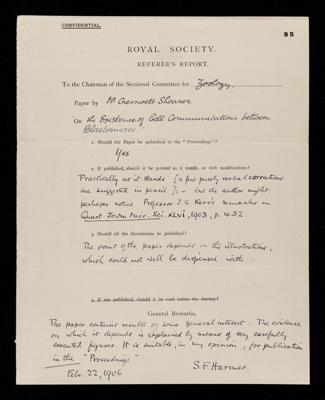 CONFIDENTIAL.
95
ROYAL SOCIETY.
REFEREE'S REPORT.
To the Chairman of the Sectional Committee for Zoology.
Paper by Mr Cresswell Shearer
"On the Existence of Cell Communications between
Blastomeres"
1. Should the Paper be published in the "Proceedings"?
Yes
2. If published, should it be printed as it stands, or with modifications?
Practically as it stands (a few purely verbal corrections
are suggested in pencil); – but the author might
perhaps notice Professor J. G. Kerr's remarks in
Quart. Journ. Micr. Sci. XLVI, 1903, p. 452
3. Should all the illustrations be published?
The point of the paper depends on the illustrations,
which could not well be dispensed with.
4. If not published, should it be read before the Society?
General Remarks.
The paper contains results of some general interest. The evidence
on which it depends is explained by means of very carefully
executed figures. It is suitable, in my opinion, for publication
in the "Proceedings"
Feb. 22, 1906
S. F. Harmer